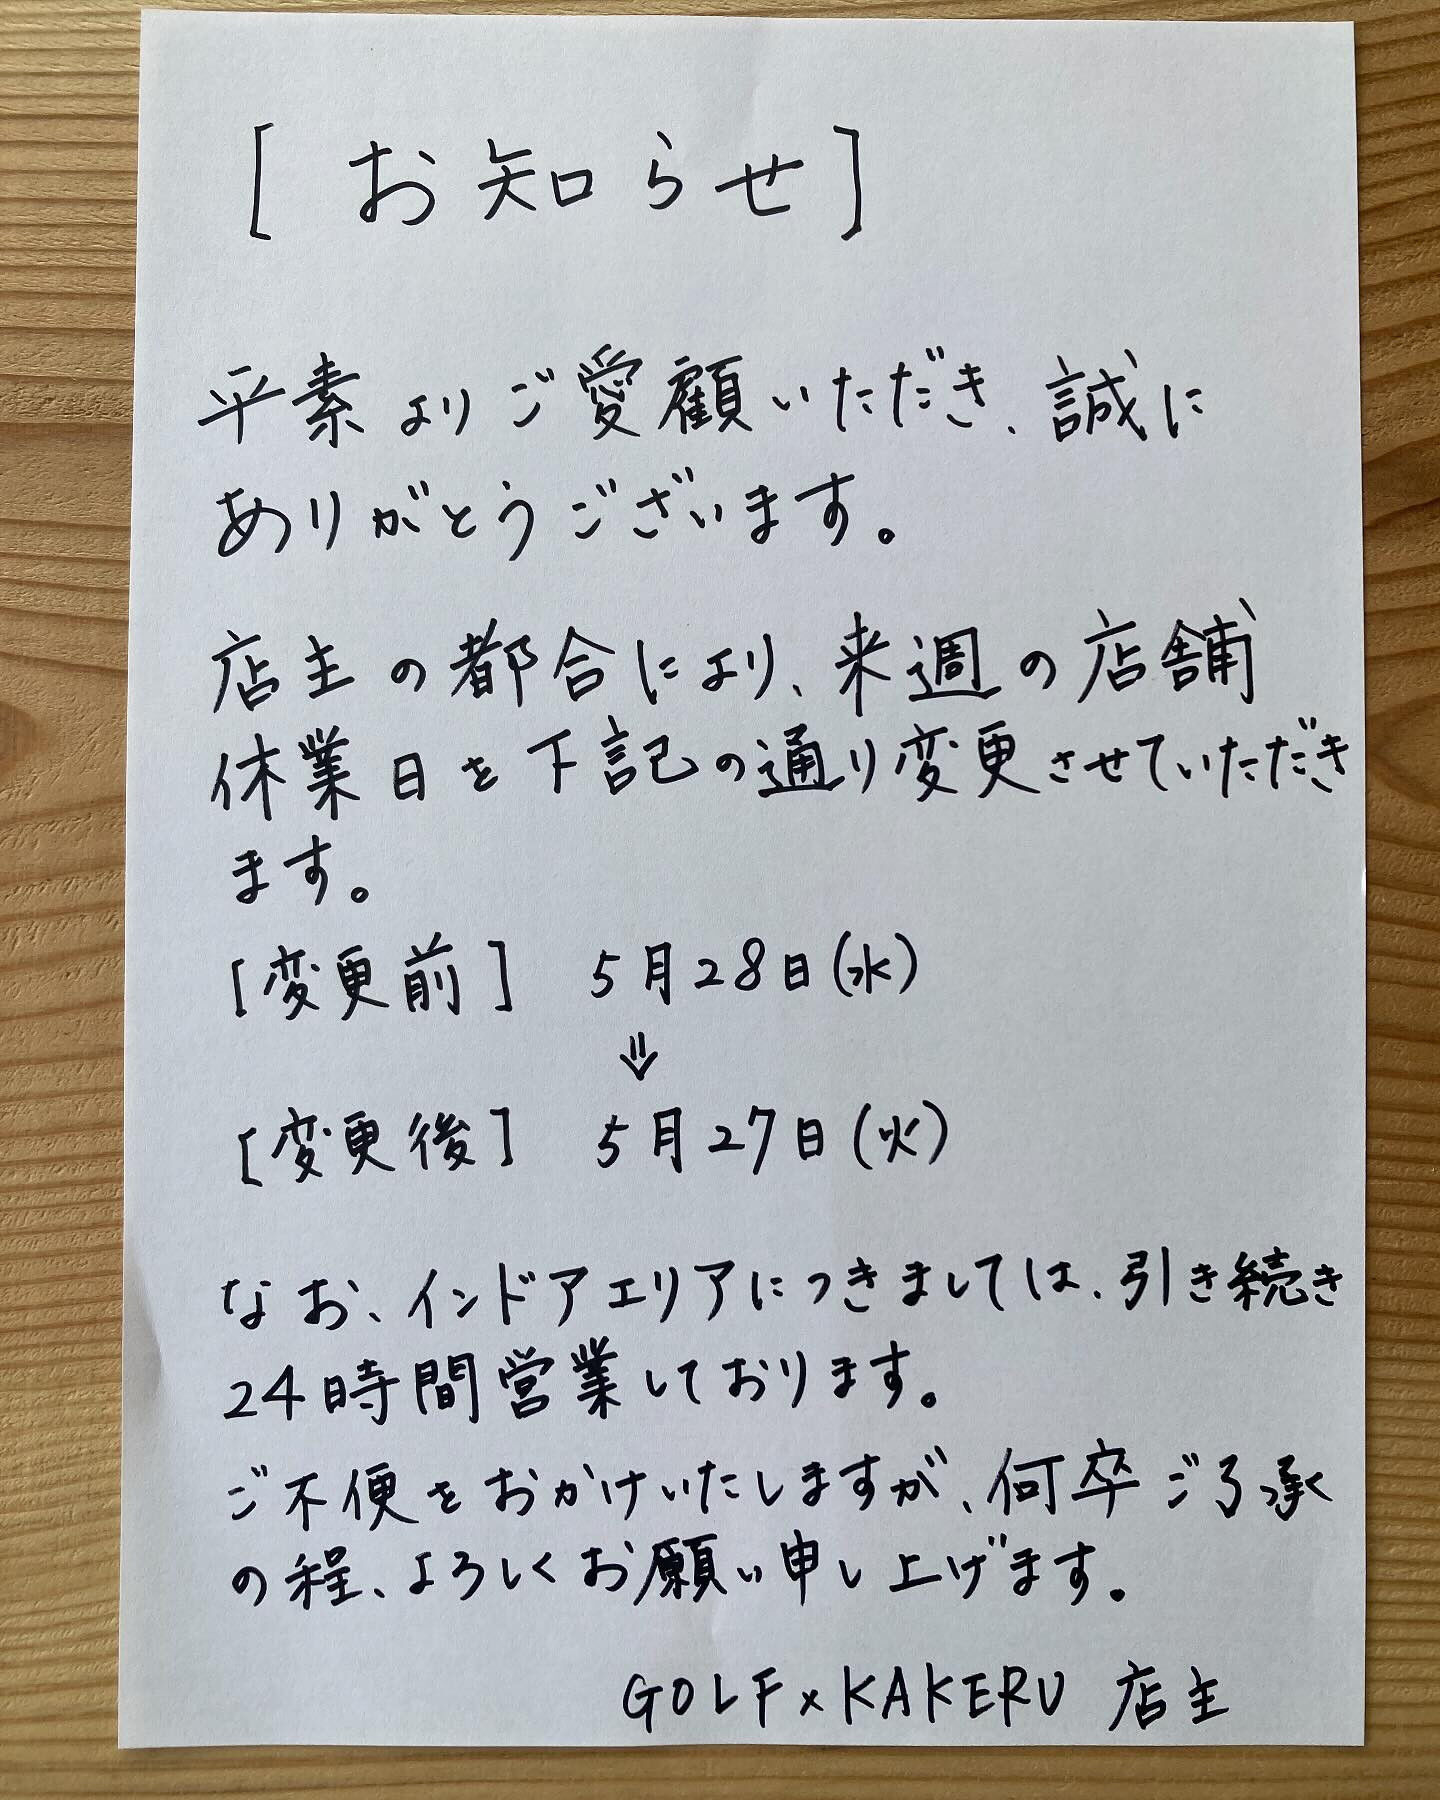 [お知らせ]
平素よりご愛顧いただき、誠に
ありがとうございます。
店主の都合により、来週の店舗
休業日を下記の通り変更させていただき
ます。
[変更前] 5月28日(水)
⇓
[変更後] 5月27日(火)
なお、インドアエリアにつきましては、引き続き
24時間営業しております。
ご不便をおかけいたしますが、何卒ご了承
の程、よろしくお願い申し上げます。
GOLF×KAKERU 店主